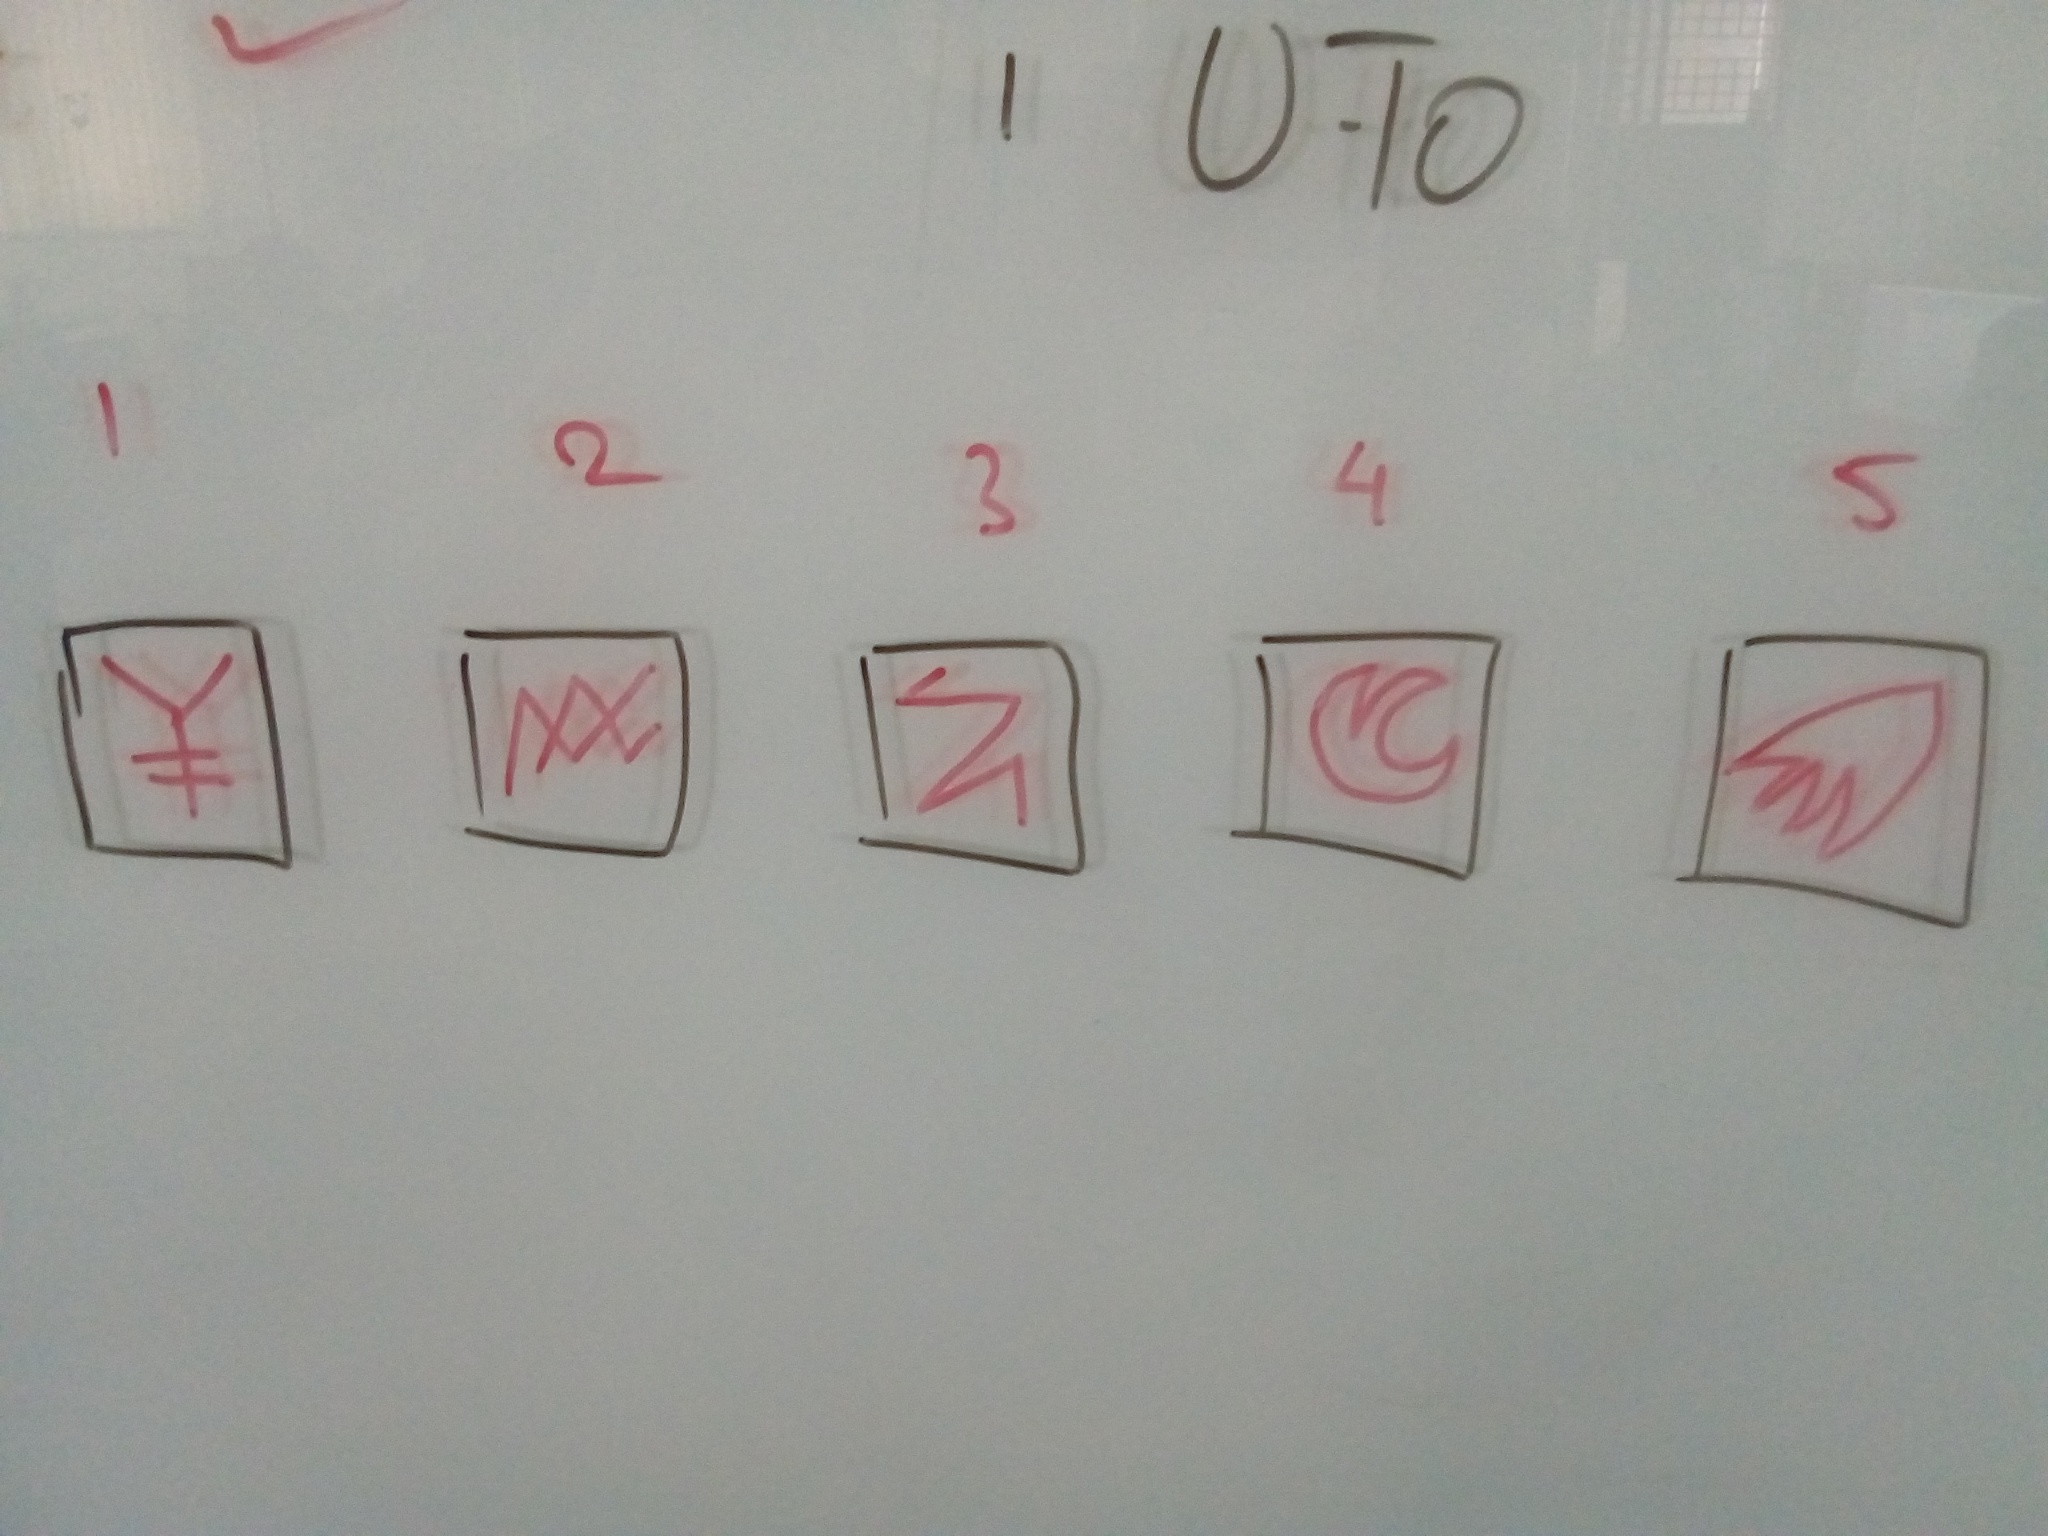 1 U-To
1 2 3 4 5
¥